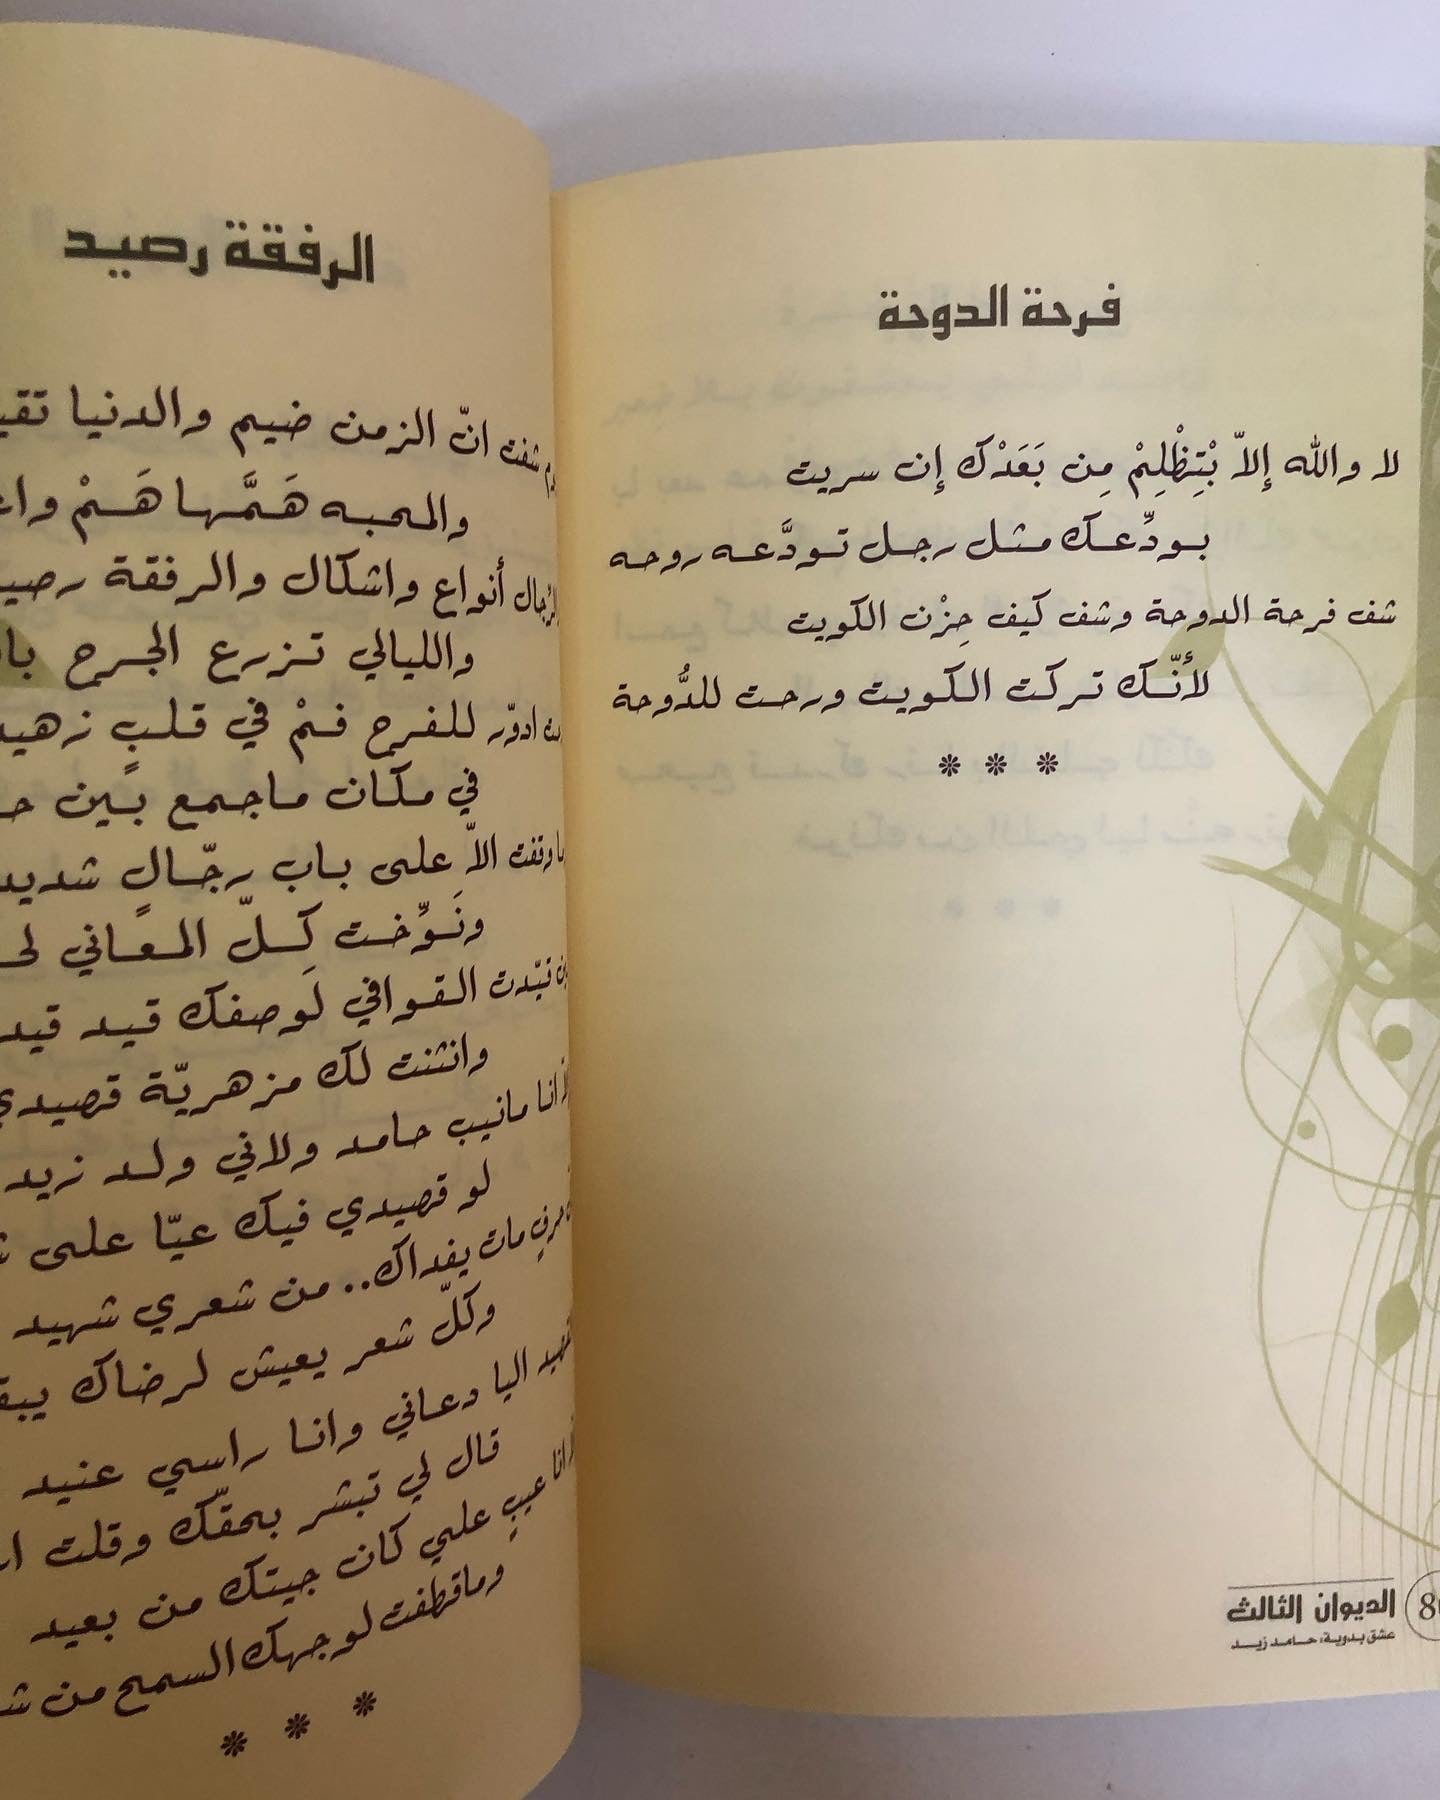 فرحة الدوحة
لا والله إلاّ بْتِظْلِمْ مِن بَعَدْك إن سريت
بودِّعك مثل رجل تودَّعه روحه
شف فرحة الدوحة وشف كيف حِزْن الكويت
لأنّك تركت الكويت ورحت للدُّوحة
الديوان الثالث
عشق بدوية، حامد زيد
الرفقة رصيد
شفت انّ الزمن ضيم والدنيا
والمحبه هَمَّها هَمْ
أنواع واشكال والرفقة
والليالي تزرع الجرح
ادوّر للفرح فمْ في قلبٍ
في مكان ماجمع بين
الاّ على باب رجّالٍ شديد
ونَوِّخت كِلّ المعاني
القوافي لَوصفك قيد
وانثنت لك مزهريّة
انا مانيب حامد ولاني ولد زيد
لو قصيدي فيك عيّا على
مات يفداك.. من شعري شهيد
وكلّ شعر يعيش لرضاك
اليا دعاني وانا راسي عنيد
قال لي تبشر بحقّك وقلت
انا عيبٍ علي كان جيتك من بعيد
وماقطفت لوجهك السمح من